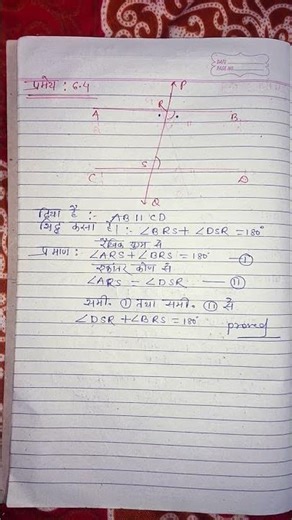 DATE
PAGE NO.
प्रमेय : 6.4
P
R
A B
S
C D
Q
दिया है :- AB || CD
सिद्ध करना है :- ∠BRS + ∠DSR = 180°
रैखिक युग्म से
प्रमाण : ∠ARS + ∠BRS = 180° — I
एकांतर कोण से
∠ARS = ∠DSR — II
समी. I तथा समी. II से
∠DSR + ∠BRS = 180° proved